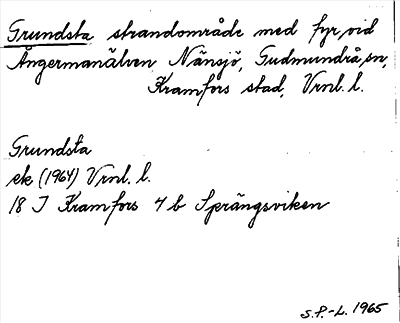 Grundsta strandområde med fyr, vid
Ångermanälven Nänsjö, Gudmundrå sn,
Kramfors stad, Vrnl. l.
Grundsta
ek (1964) Vrnl. l.
18 I Kramfors 4 b Sprängsviken
S.P.-L. 1965